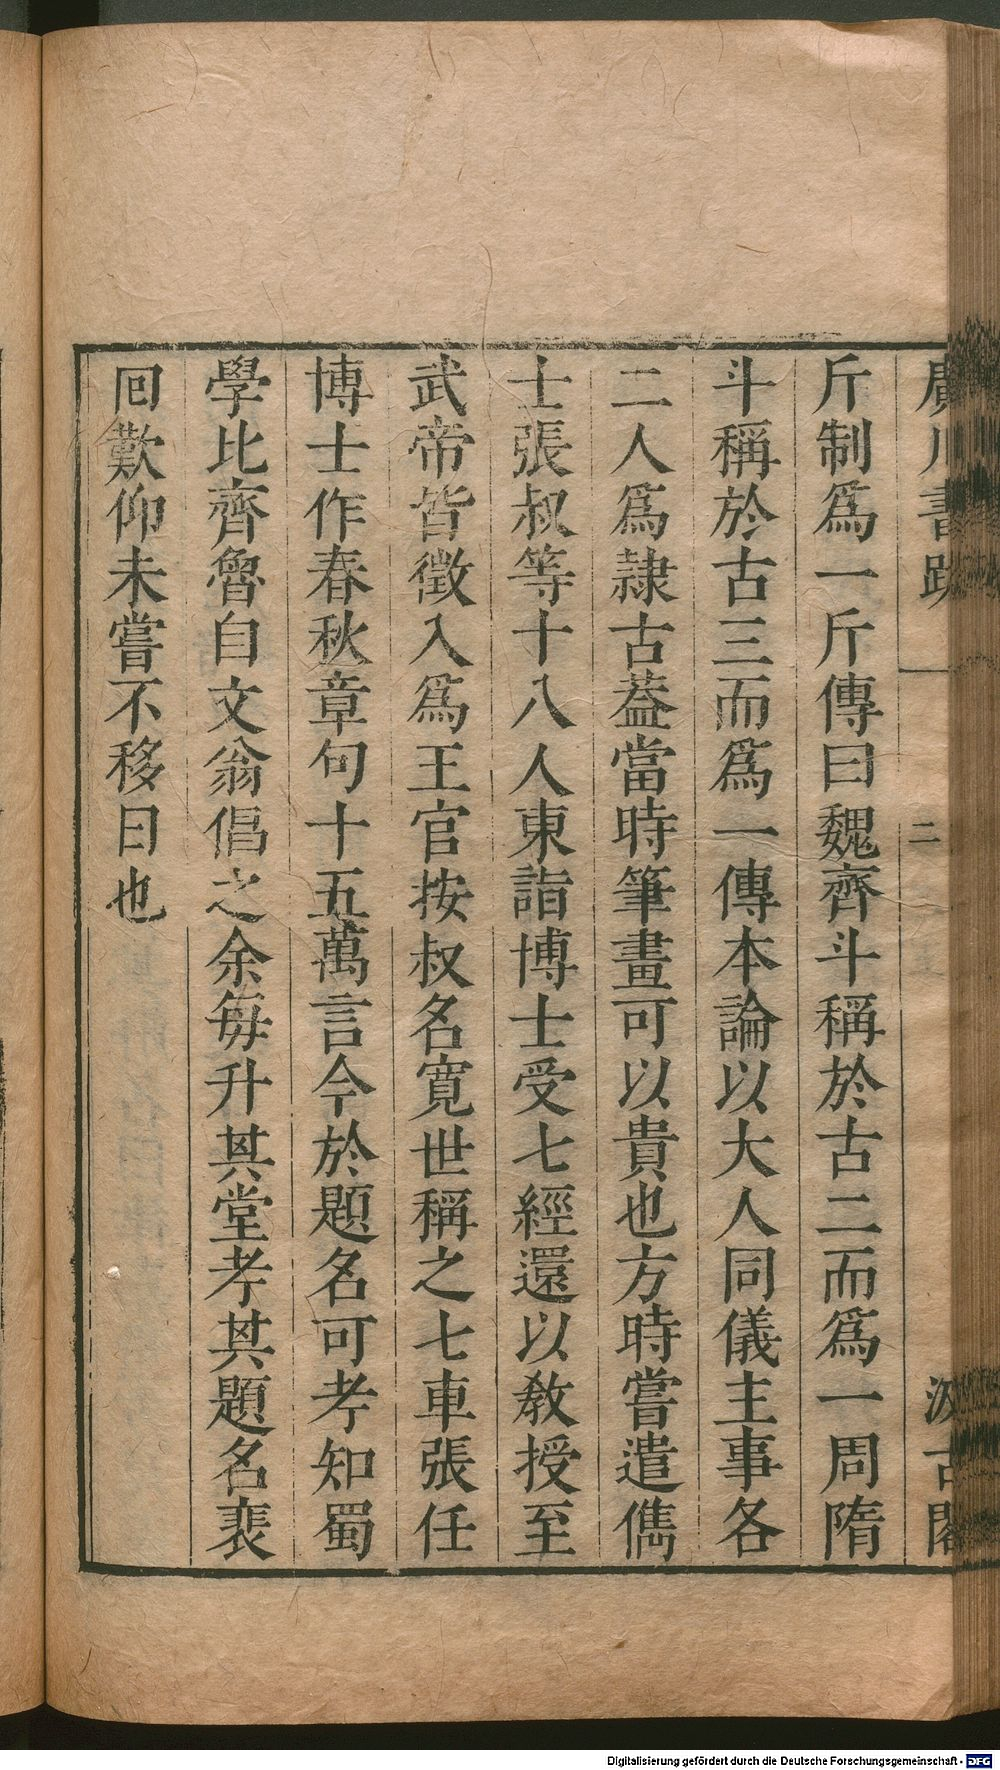 廣川書跋
二
汲古閣
斤制爲一斤傳曰魏齊斗稱於古二而爲一周隋
斗稱於古三而爲一傳本論以大人同儀主事各
二人爲隷古葢當時筆畫可以貴也方時嘗遣儁
士張叔等十八人東詣博士受七經還以敎授至
武帝皆徵入爲王官按叔名寛世稱之七車張任
博士作春秋章句十五萬言今於題名可孝知蜀
學比齊魯自文翁倡之余每升其堂孝其題名裵
囘歎仰未嘗不移日也
Digitalisierung gefördert durch die Deutsche Forschungsgemeinschaft - DFG